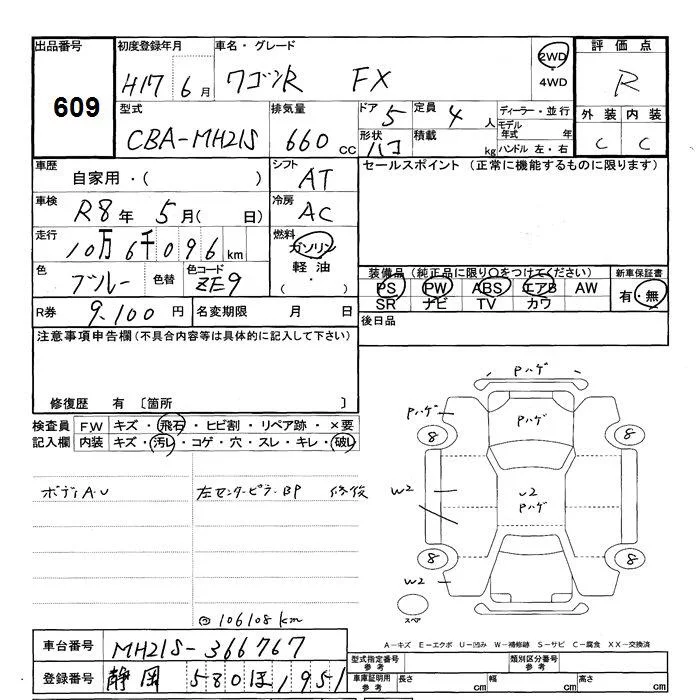 出品番号 初度登録年月 車名・グレード 2WD 評価点
609 H17 6月 ワゴンR FX 4WD R
型式 排気量 ドア 5 定員 4人 ディーラー・並行 外装 内装
CBA-MH21S 660cc 形状 ハコ 積載 kg モデル年式 年 C C
ハンドル 左・右
車歴 自家用・( ) シフト AT セールスポイント (正常に機能するものに限ります)
車検 R8年 5月( 日) 冷房 AC
走行 10万6千096km 燃料 ガソリン
色 ブルー 色替 色コード ZE9 軽油・ 装備品 (純正品に限り○をつけてください) 新車保証書
PS PW ABS エアB AW 有・無
SR ナビ TV カワ
R券 9,100円 名変期限 月 日 後日品
注意事項申告欄(不具合内容等は具体的に記入して下さい)
修復歴 有 〔箇所 〕
検査員 FW キズ・飛石・ヒビ割・リペア跡・×要
記入欄 内装 キズ・汚レ・コゲ・穴・スレ・キレ・破レ
ボディA・U 左センターピラーBP 修復
Pハゲ
Pハゲ Pハゲ
8 8
W2 U2
Pハゲ
8 8
W2
スペア
◎106108km
A-キズ E-エクボ U-凹み W-補修跡 S-サビ C-腐食 XX-交換済
車台番号 MH21S-366767 型式指定番号 参考 類別区分番号 参考
登録番号 静岡 580ほ1951 車庫証明用 参考 長さ cm 幅 cm 高さ cm